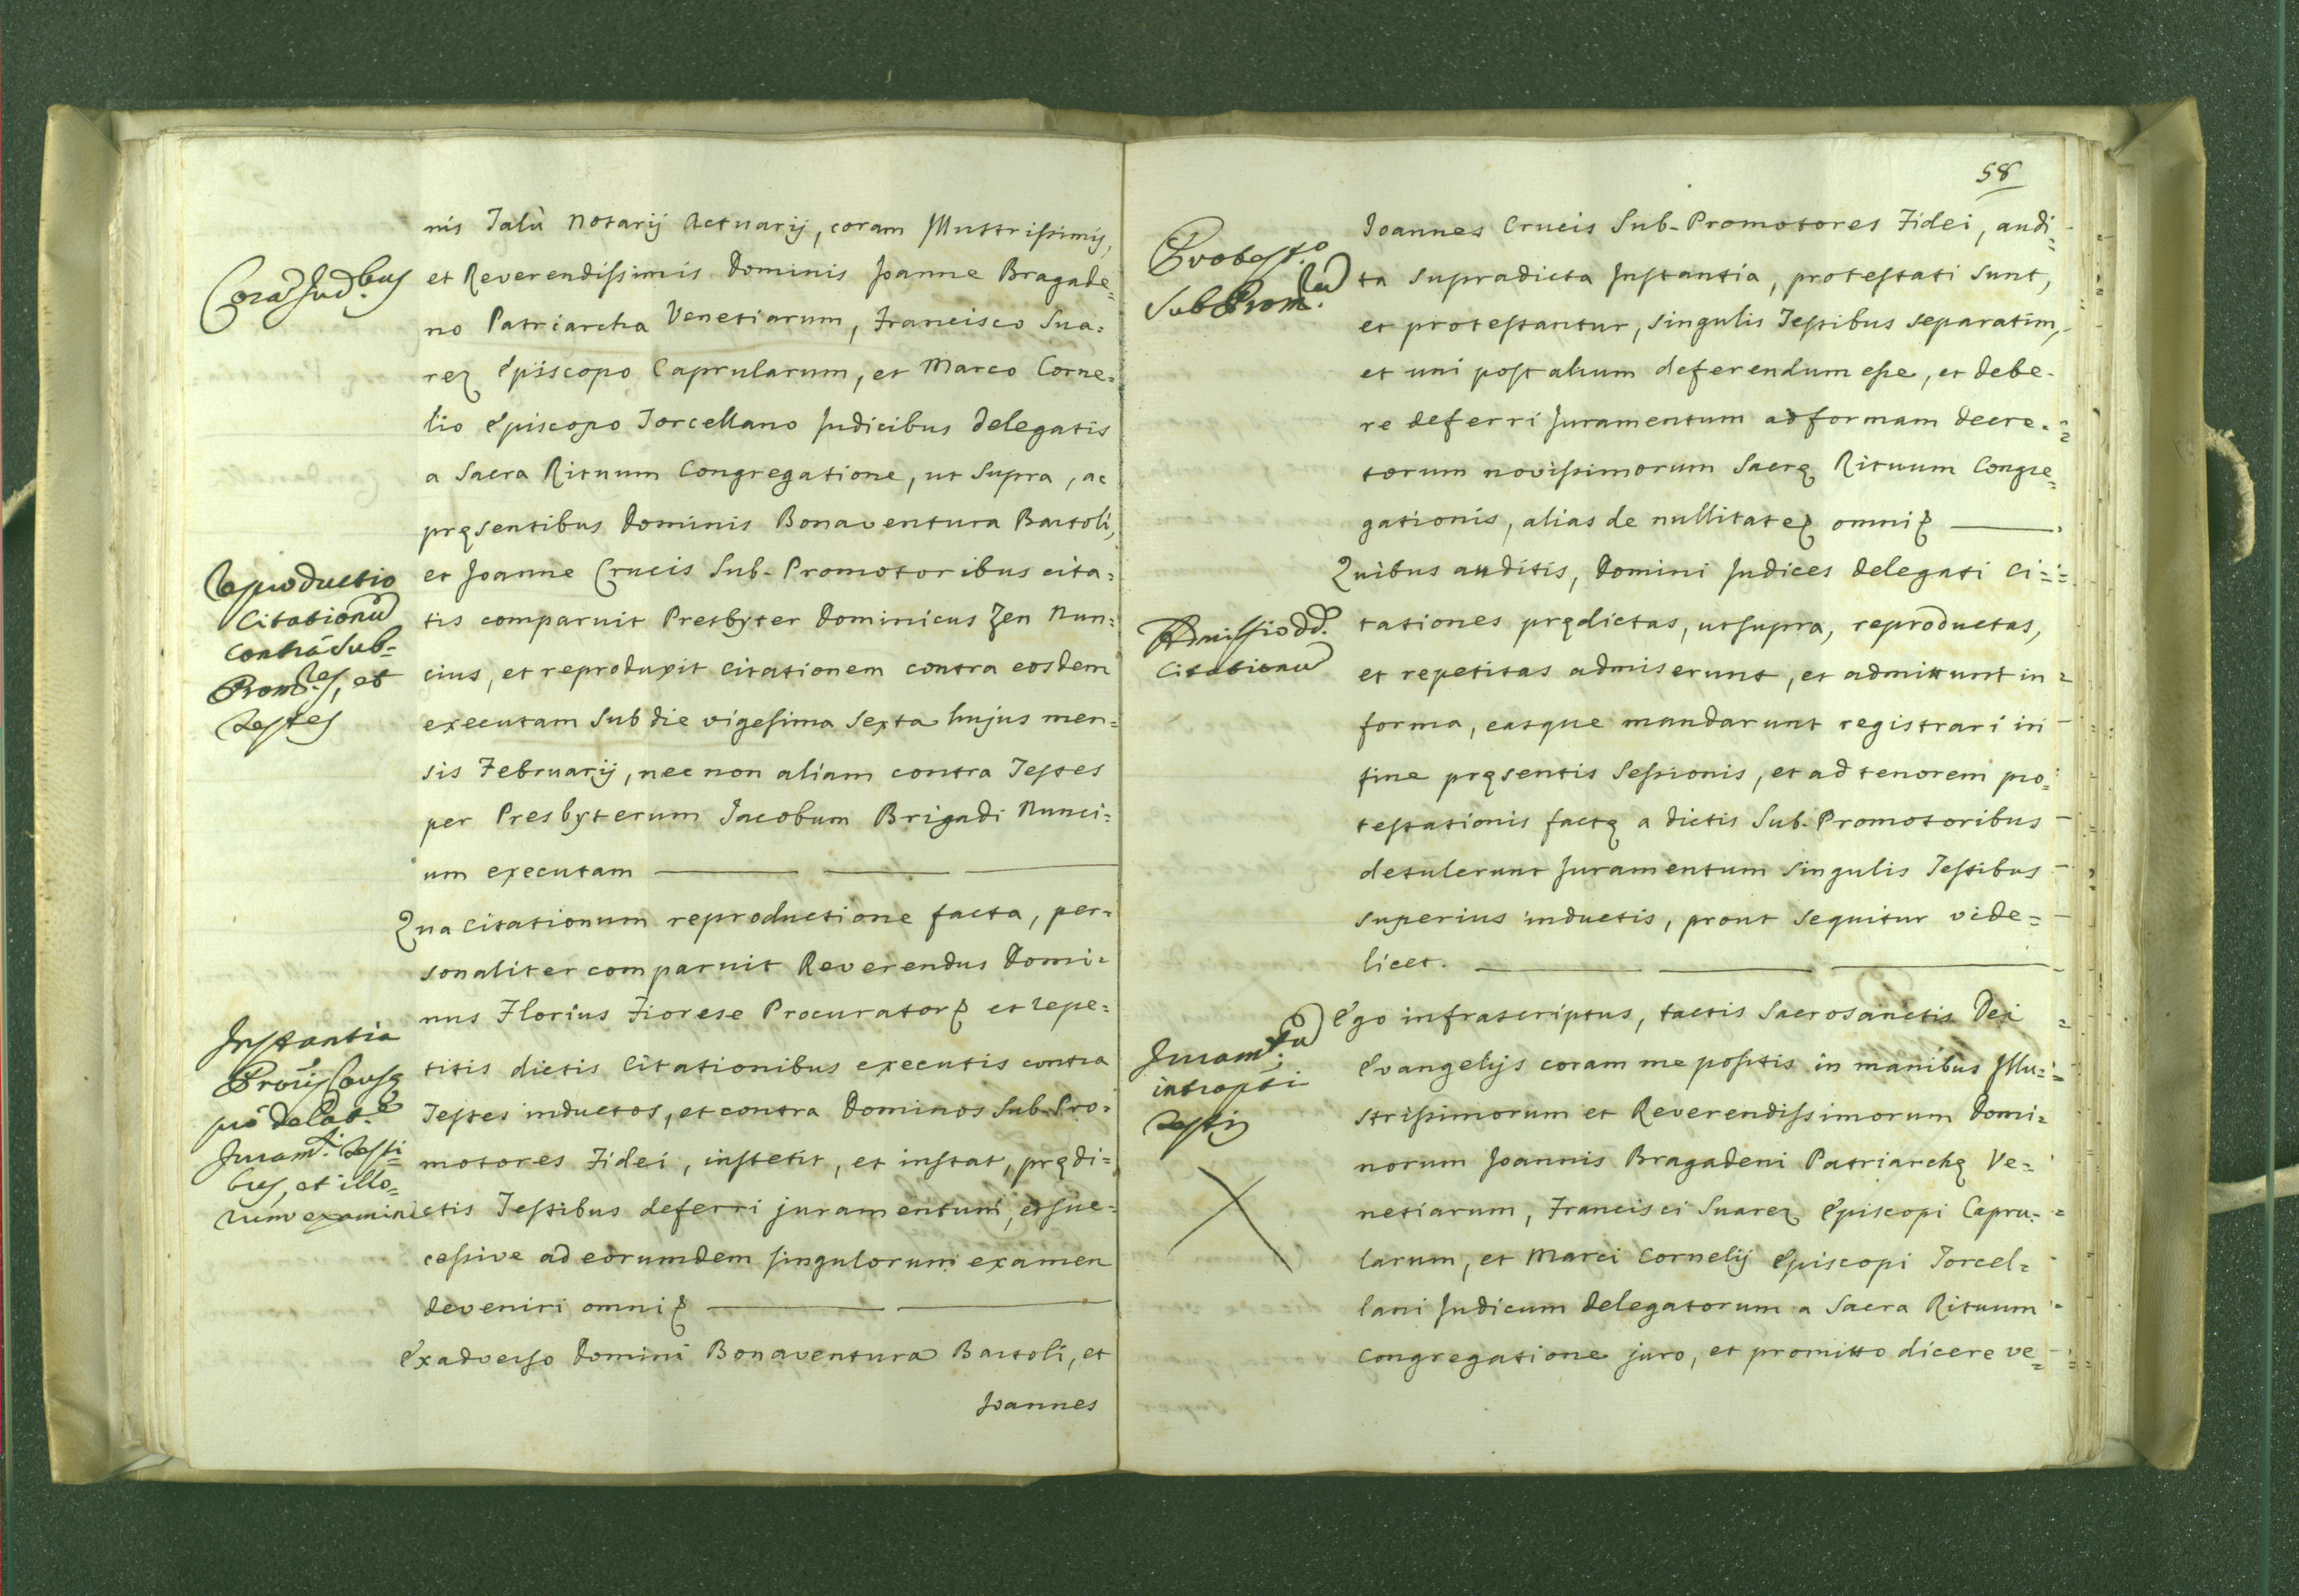 nis Talù Notarij Actuarij, coram Illustrissimis,
Corã Jud.bus
et Reverendissimis Dominis Joanne Bragade=
no Patriarcha Venetiarum, Francisco Sua=
rez Episcopo Caprularum, et Marco Corne=
lio Episcopo Torcellano Judicibus Delegatis
a Sacra Rituum Congregatione, ut supra, ac
pręsentibus Dominis Bonaventura Bartoli,
et Joanne Crucis Sub-Promotoribus cita=
tis comparuit Presbyter Dominicus Zen Nun=
cius, et reproduxit citationem contra eosdem
executam sub die vigesima sexta hujus men=
sis Februarij, nec non aliam contra Testes
per Presbyterum Jacobum Brigadi Nunci=
um executam
Reproductio
Citationũ
contrà Sub=
Prom.res, et
Testes
Qua citationum reproductione facta, per=
sonaliter comparuit Reverendus Domi=
nus Florius Fiorese Procurator et repe=
titis dictis Citationibus executis contra
Testes inductos, et contra Dominos Sub-Pro=
motores Fidei, institit, et instat, prędi=
ctis Testibus deferri juramentum, et suc=
cessive ad eorumdem singulorum examen
deveniri omni
Instantia
Proris Causę
pro delat.e
Juram.ti Testi=
bus, et illo=
rum examini
Ex adverso Domini Bonaventura Bartoli, et
Joannes
58
Joannes Crucis Sub-Promotores Fidei, audi=
ta supradicta Instantia, protestati sunt,
et protestantur, singulis Testibus separatim,
et uni post alium deferendum esse, et debe=
re deferri Juramentum ad formam decre=
torum novissimorum Sacrę Rituum Congre=
gationis, alias de nullitate omni
Protest.o
Sub Prom.
Quibus auditis, Domini Judices delegati Ci=
tationes prędictas, ut supra, reproductas,
et repetitas admiserunt, et admittunt in
forma, easque mandarunt registrari in
fine pręsentis Sessionis, et ad tenorem pro=
testationis factę a dictis Sub-Promotoribus
detulerunt Juramentum singulis Testibus
superius inductis, prout sequitur vide=
licet.
Admissio dd.
Citationũ
Ego infrascriptus, tactis Sacrosanctis Dei
Evangelijs coram me positis in manibus Illu=
strissimorum et Reverendissimorum Domi=
norum Joannis Bragadeni Patriarchę Ve=
netiarum, Francisci Suarez Episcopi Capru=
larum, et Marci Cornelij Episcopi Torcel=
lani Judicum Delegatorum a Sacra Rituum
Congregatione juro, et promitto dicere ve=
Juram.tũ
infrapti
Testis